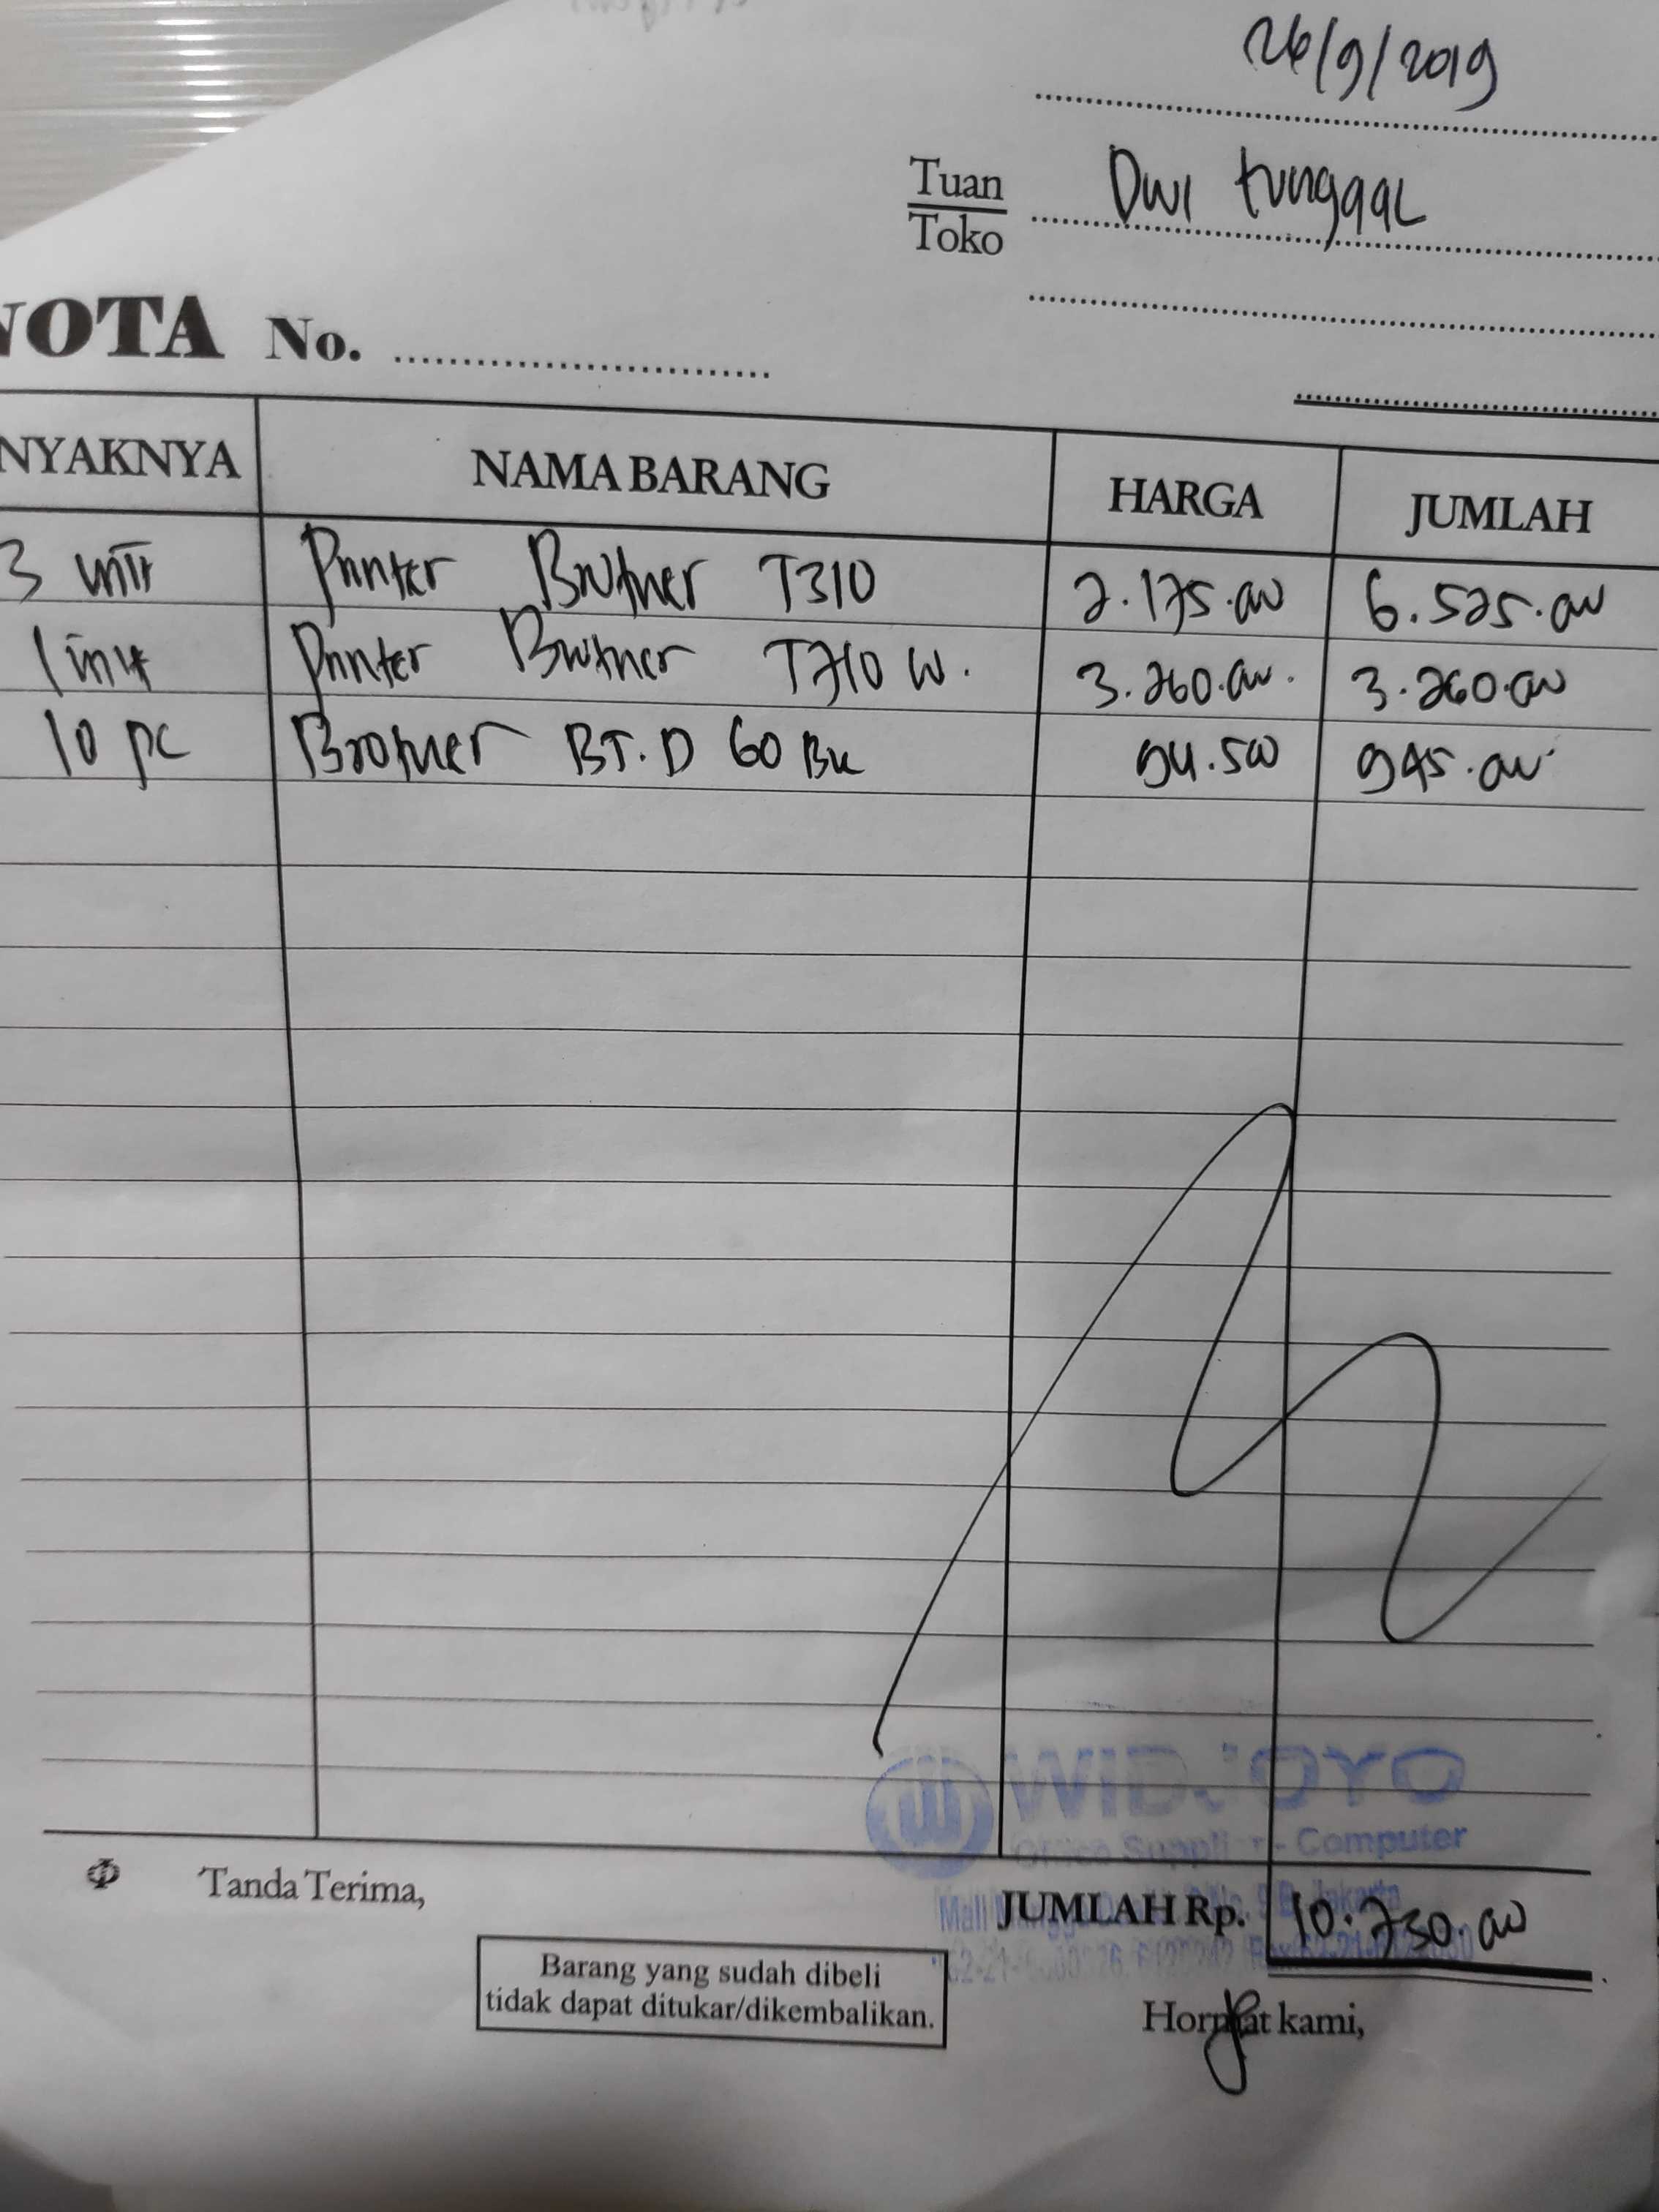 26/9/2019
Tuan Dwi tunggal
Toko
NOTA No.
NYAKNYA NAMA BARANG HARGA JUMLAH
3 unit Printer Brother T310 2.175.00 6.525.00
1 unit Printer Brother T710 W. 3.260.00. 3.260.00
10 pc Brother BT.D 60 BK 94.500 945.00
WIDJOYO
Office Supplies - Computer
Tanda Terima,
JUMLAH Rp. 10.730.00
Barang yang sudah dibeli
tidak dapat ditukar/dikembalikan.
Hormat kami,